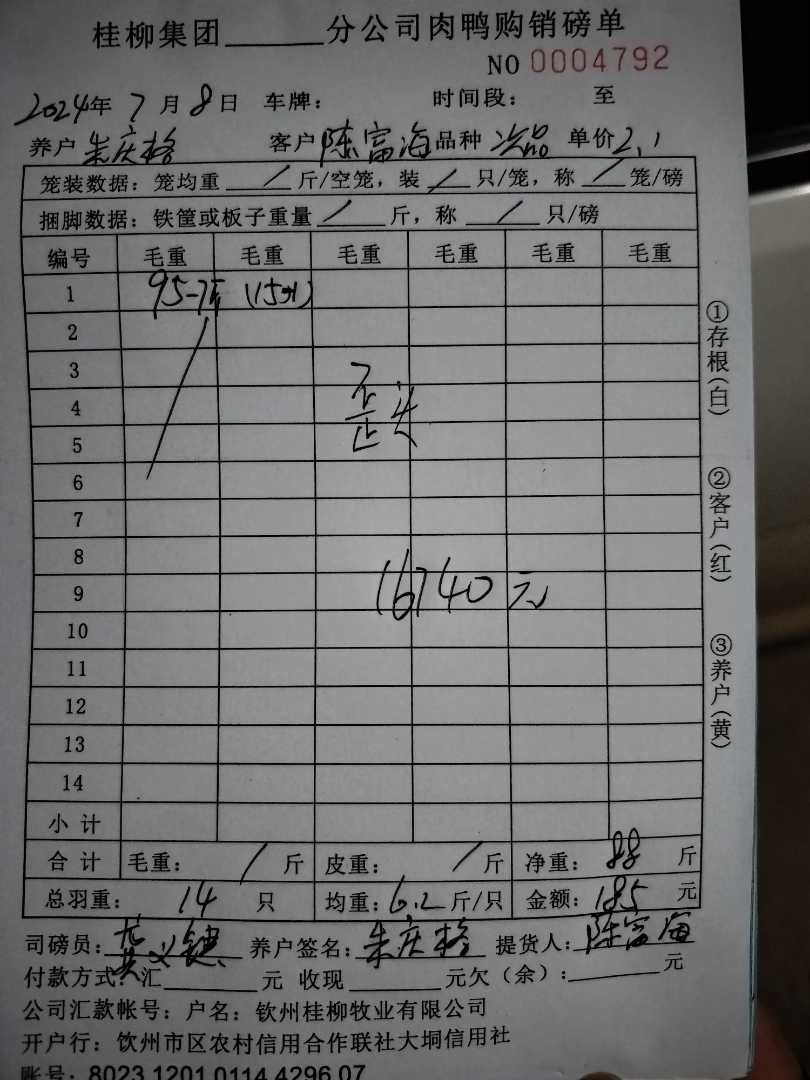 桂柳集团______分公司肉鸭购销磅单
NO 0004792
2024年 7 月 8 日 车牌： 时间段： 至
养户 朱庆格 客户 陈富海 品种 次品 单价 2.1
笼装数据：笼均重 / 斤/空笼，装 / 只/笼，称 / 笼/磅
捆脚数据：铁筐或板子重量 / 斤，称 / 只/磅
编号 毛重 毛重 毛重 毛重 毛重 毛重
1 95-7斤
2
3
4
5
6
7
8
9 元
10
11
12
13
14
小计
合计 毛重： / 斤 皮重： / 斤 净重： 88 斤
总羽重： 14 只 均重：6.2 斤/只 金额：185 元
司磅员： 养户签名：朱庆格 提货人：陈富海
付款方式：汇______元 收现______元欠（余）：______元
公司汇款帐号：户名：钦州桂柳牧业有限公司
开户行：钦州市区农村信用合作联社大垌信用社
账号：8023 1201 0114 4296 07
①存根（白）
②客户（红）
③养户（黄）